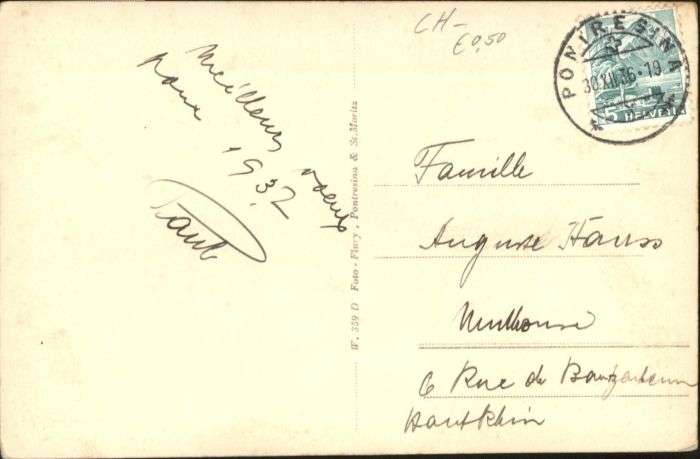 CH-
€0,50
PONTRESINA
30.XII.36-19
5 HELVETIA
meilleurs voeux
pour 1932
Paul
W. 359 D Foto-Flury, Pontresina & St. Moritz
Famille
Auguste Hauss
Mulhouse
6 Rue du
Haut Rhin